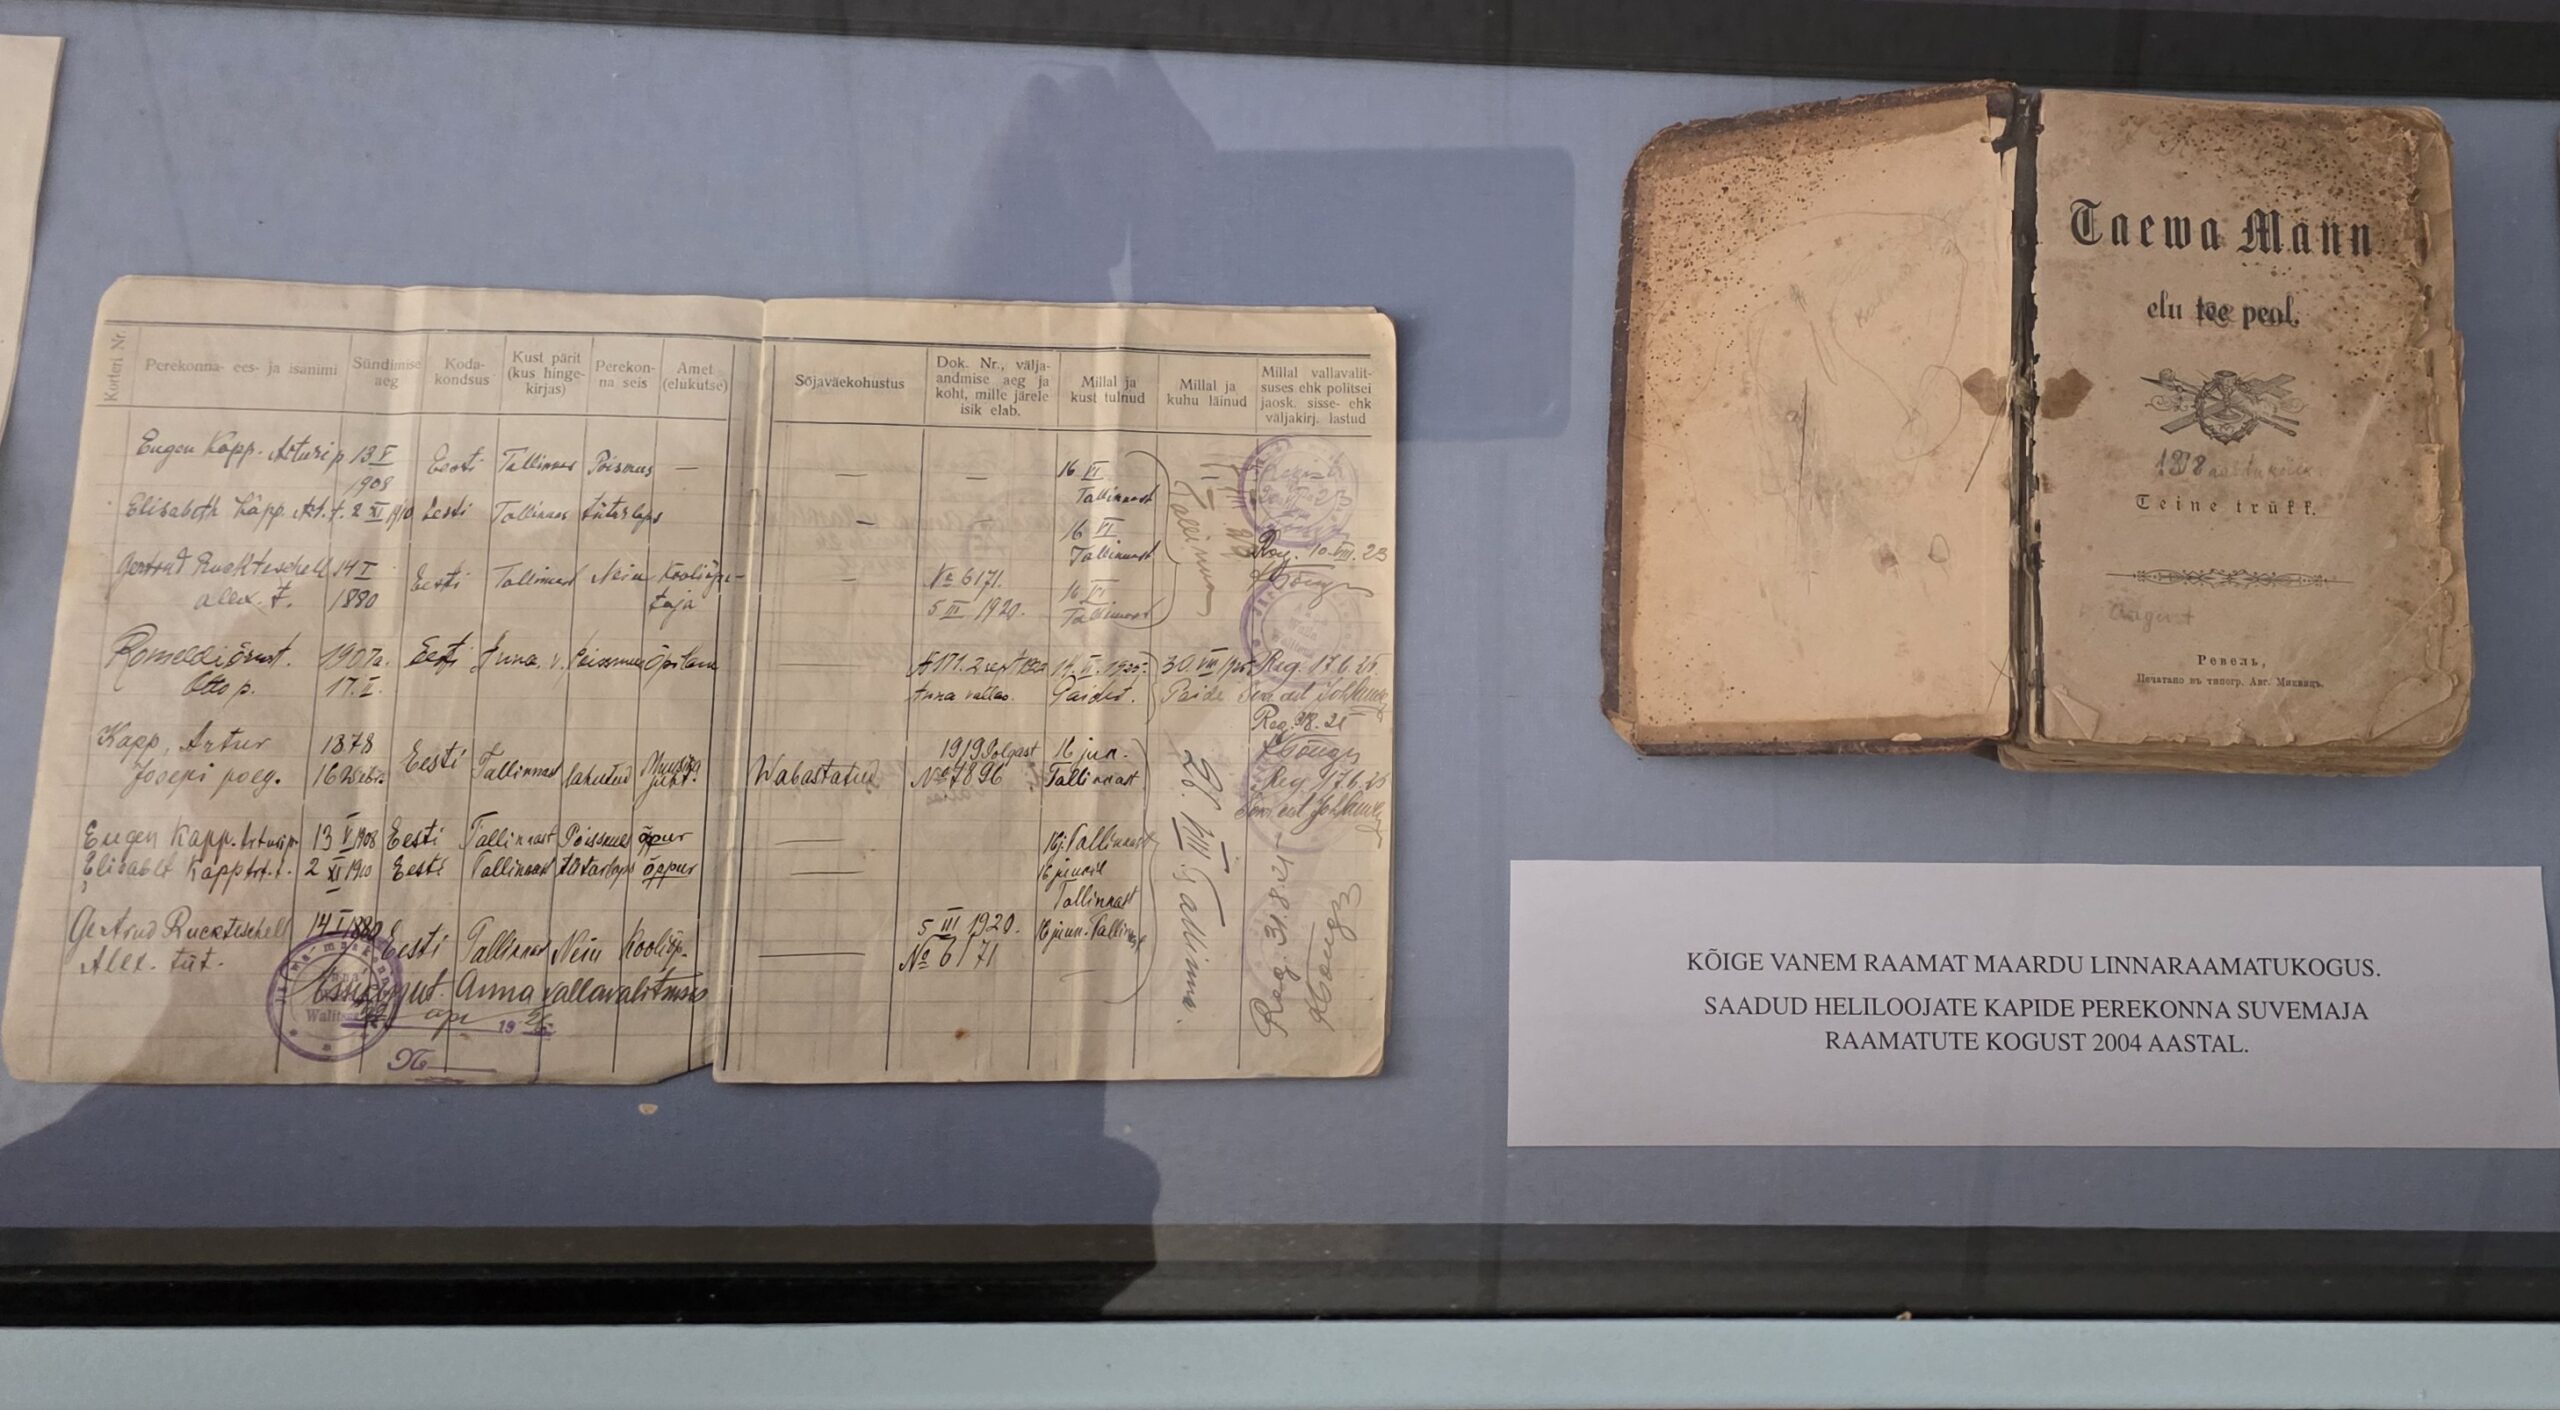 Korteri Nr.
Perekonna- ees- ja isanimi
Sündimise aeg
Koda-kondsus
Kust pärit (kus hinge-kirjas)
Perekon-na seis
Amet (elukutse)
Sõjaväekohustus
Dok. Nr., välja-andmise aeg ja koht, mille järele isik elab.
Millal ja kust tulnud
Millal ja kuhu läinud
Millal vallavalit-suses ehk politsei jaosk. sisse- ehk väljakirj. lastud
Eugen Kapp. Arturi p. 13 V Eesti Tallinnas Poismees — — — 16 VI
1908 Tallinnast
Elisabeth Kapp. Art. t. 2 XI 1910 Eesti Tallinnas tütarlaps — 16 VI
Tallinnast
Reg. 10. VIII. 23
Gertrud Ruckteschell 14 I Eesti Tallinnast Nein Kooliõpe- — № 6171. 16 VI
Alex. t. 1880 taja 5 III 1920. Tallinnast
Tallinna
1907a. Eesti Anna v. Poissmees Õpilane 30. VIII 1925 Reg. 17.6.25
Otto p. 17. II. Anna vallav. Paidest. Paide
Kapp, Artur 1878 Eesti Tallinnast lahutud Muusika Wabastatud 1919 16 jun.
Josepi poeg. 16 juht. № 7896 Tallinnast Reg. 17.6.25
Eugen Kapp. Arturi p. 13 V 1908 Eesti Tallinnast Poissmees õppur — 16 j. Tallinnast
Kapp Art. t. 2 XI 1910 Eesti Tallinnast tütarlaps õppur — 16 juunil
Tallinnast
Gertrud Ruckteschell 14 I 1880 Eesti Tallinnas Nein Kooliõp. — 5 III 1920. 16 juun. Tallinnast
Alex. tüt. № 6171
VIII. Tallinna.
Reg. 31.8.25
Anna vallavalitsuses
19
№
Taewa Mann
elu tee peal.
Teine trükk.
August
Ревель,
Печатано въ типогр. Авг. Миквицъ.
KÕIGE VANEM RAAMAT MAARDU LINNARAAMATUKOGUS.
SAADUD HELILOOJATE KAPIDE PEREKONNA SUVEMAJA
RAAMATUTE KOGUST 2004 AASTAL.